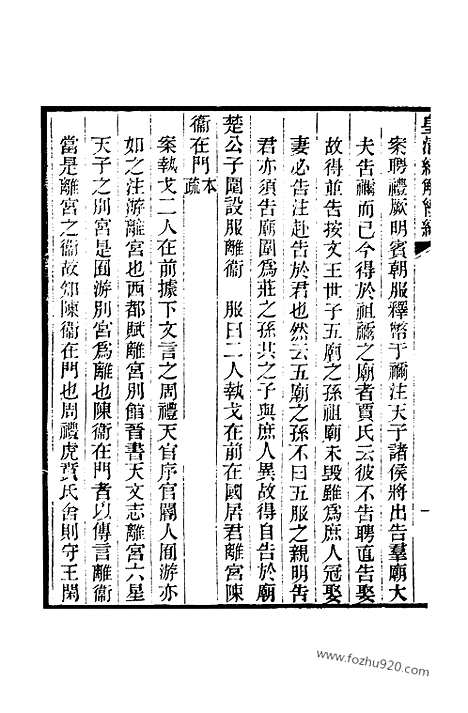 皇清經解續編
一
案聘禮厥明賓朝服釋幣于禰注天子諸侯將出告羣廟大
夫告禰而已今得於祖禰之廟者賈氏云彼不告聘直告娶
故得並告按文王世子五廟之孫祖廟未毀雖爲庶人冠娶
妻必告注赴告於君也然云五廟之孫不曰五服之親明告
君亦須告廟圍爲莊之孫共之子與庶人異故得自告於廟
楚公子圍設服離衞 服曰二人執戈在前在國居君離宮陳
衞在門本疏
案執戈二人在前據下文言之周禮天官序官閽人囿游亦
如之注游離宮也西都賦離宮別館晉書天文志離宮六星
天子之別宮是囿游別宮爲離也陳衞在門者以傳言離衞
當是離宮之衞故知陳衞在門也周禮虎賁氏舍則守王閑
www.fozhu920.com